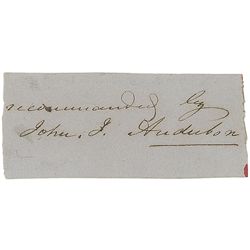 recommended by
John, J. Audubon